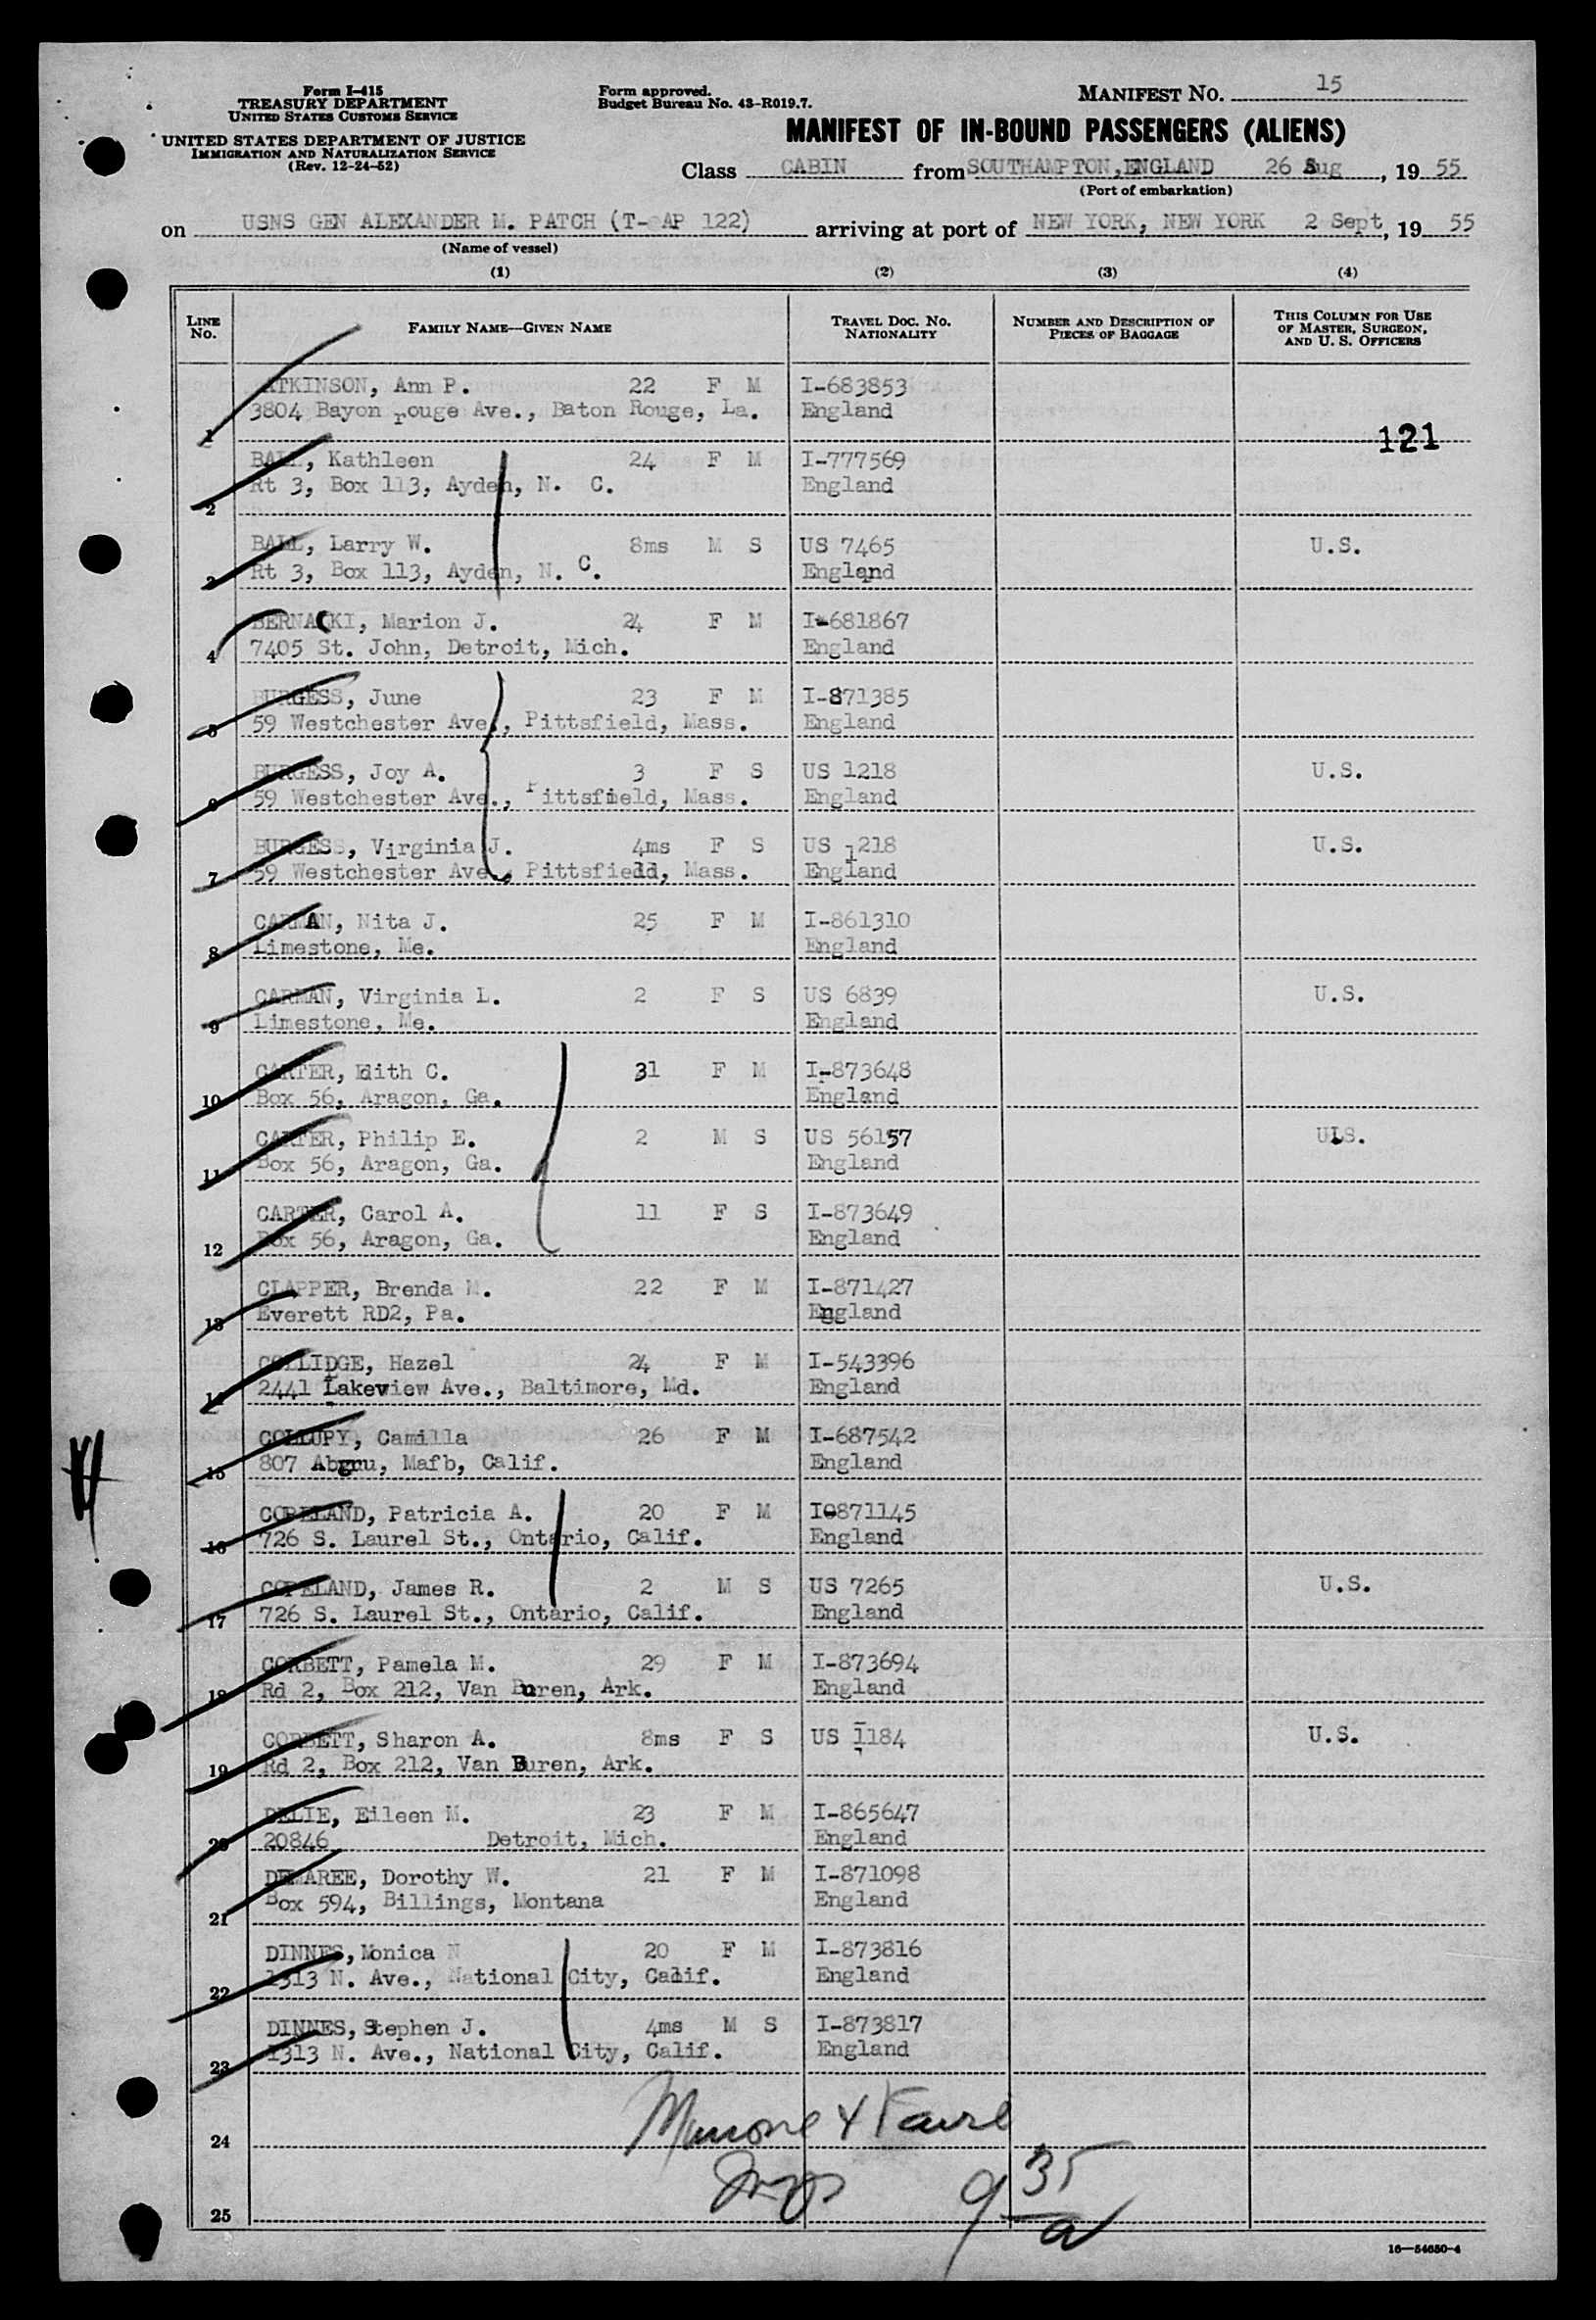 Form I-415
TREASURY DEPARTMENT
UNITED STATES CUSTOMS SERVICE
UNITED STATES DEPARTMENT OF JUSTICE
IMMIGRATION AND NATURALIZATION SERVICE
(Rev. 12-24-52)
Form approved.
Budget Bureau No. 43-R019.7.
MANIFEST NO. 15
MANIFEST OF IN-BOUND PASSENGERS (ALIENS)
Class CABIN from SOUTHAMPTON, ENGLAND 26 Aug, 19 55
(Port of embarkation)
on USNS GEN ALEXANDER M. PATCH (T-AP 122) arriving at port of NEW YORK, NEW YORK 2 Sept, 19 55
(Name of vessel)
(1) (2) (3) (4)
LINE NO. FAMILY NAME—GIVEN NAME TRAVEL DOC. NO. NATIONALITY NUMBER AND DESCRIPTION OF PIECES OF BAGGAGE THIS COLUMN FOR USE OF MASTER, SURGEON, AND U. S. OFFICERS
ATKINSON, Ann P. 22 F M I-683853
1 3804 Bayon rouge Ave., Baton Rouge, La. England
121
BALL, Kathleen 24 F M I-777569
2 Rt 3, Box 113, Ayden, N. C. England
BALL, Larry W. 8ms M S US 7465 U.S.
3 Rt 3, Box 113, Ayden, N. C. England
BERNACKI, Marion J. 24 F M I-681867
4 7405 St. John, Detroit, Mich. England
BURGESS, June 23 F M I-871385
5 59 Westchester Ave., Pittsfield, Mass. England
BURGESS, Joy A. 3 F S US 1218 U.S.
6 59 Westchester Ave., Pittsfield, Mass. England
BURGESS, Virginia J. 4ms F S US 1218 U.S.
7 59 Westchester Ave., Pittsfield, Mass. England
CARMAN, Nita J. 25 F M I-861310
8 Limestone, Me. England
CARMAN, Virginia L. 2 F S US 6839 U.S.
9 Limestone, Me. England
CARTER, Edith C. 31 F M I-873648
10 Box 56, Aragon, Ga. England
CARTER, Philip E. 2 M S US 56157 U.S.
11 Box 56, Aragon, Ga. England
CARTER, Carol A. 11 F S I-873649
12 Box 56, Aragon, Ga. England
CLAPPER, Brenda M. 22 F M I-871427
13 Everett RD2, Pa. England
COLLIDGE, Hazel 24 F M I-543396
14 2441 Lakeview Ave., Baltimore, Md. England
COLLUPY, Camilla 26 F M I-687542
15 807 Mafb, Calif. England
COPELAND, Patricia A. 20 F M I0871145
16 726 S. Laurel St., Ontario, Calif. England
COPELAND, James R. 2 M S US 7265 U.S.
17 726 S. Laurel St., Ontario, Calif. England
CORBETT, Pamela M. 29 F M I-873694
18 Rd 2, Box 212, Van Buren, Ark. England
CORBETT, Sharon A. 8ms F S US 1184 U.S.
19 Rd 2, Box 212, Van Buren, Ark.
DELIE, Eileen M. 23 F M I-865647
20 20846 Detroit, Mich. England
DEMAREE, Dorothy W. 21 F M I-871098
21 Box 594, Billings, Montana England
DINNES, Monica N 20 F M I-873816
22 1313 N. Ave., National City, Calif. England
DINNES, Stephen J. 4ms M S I-873817
23 1313 N. Ave., National City, Calif. England
24
25
9 35 a
16—54650-4